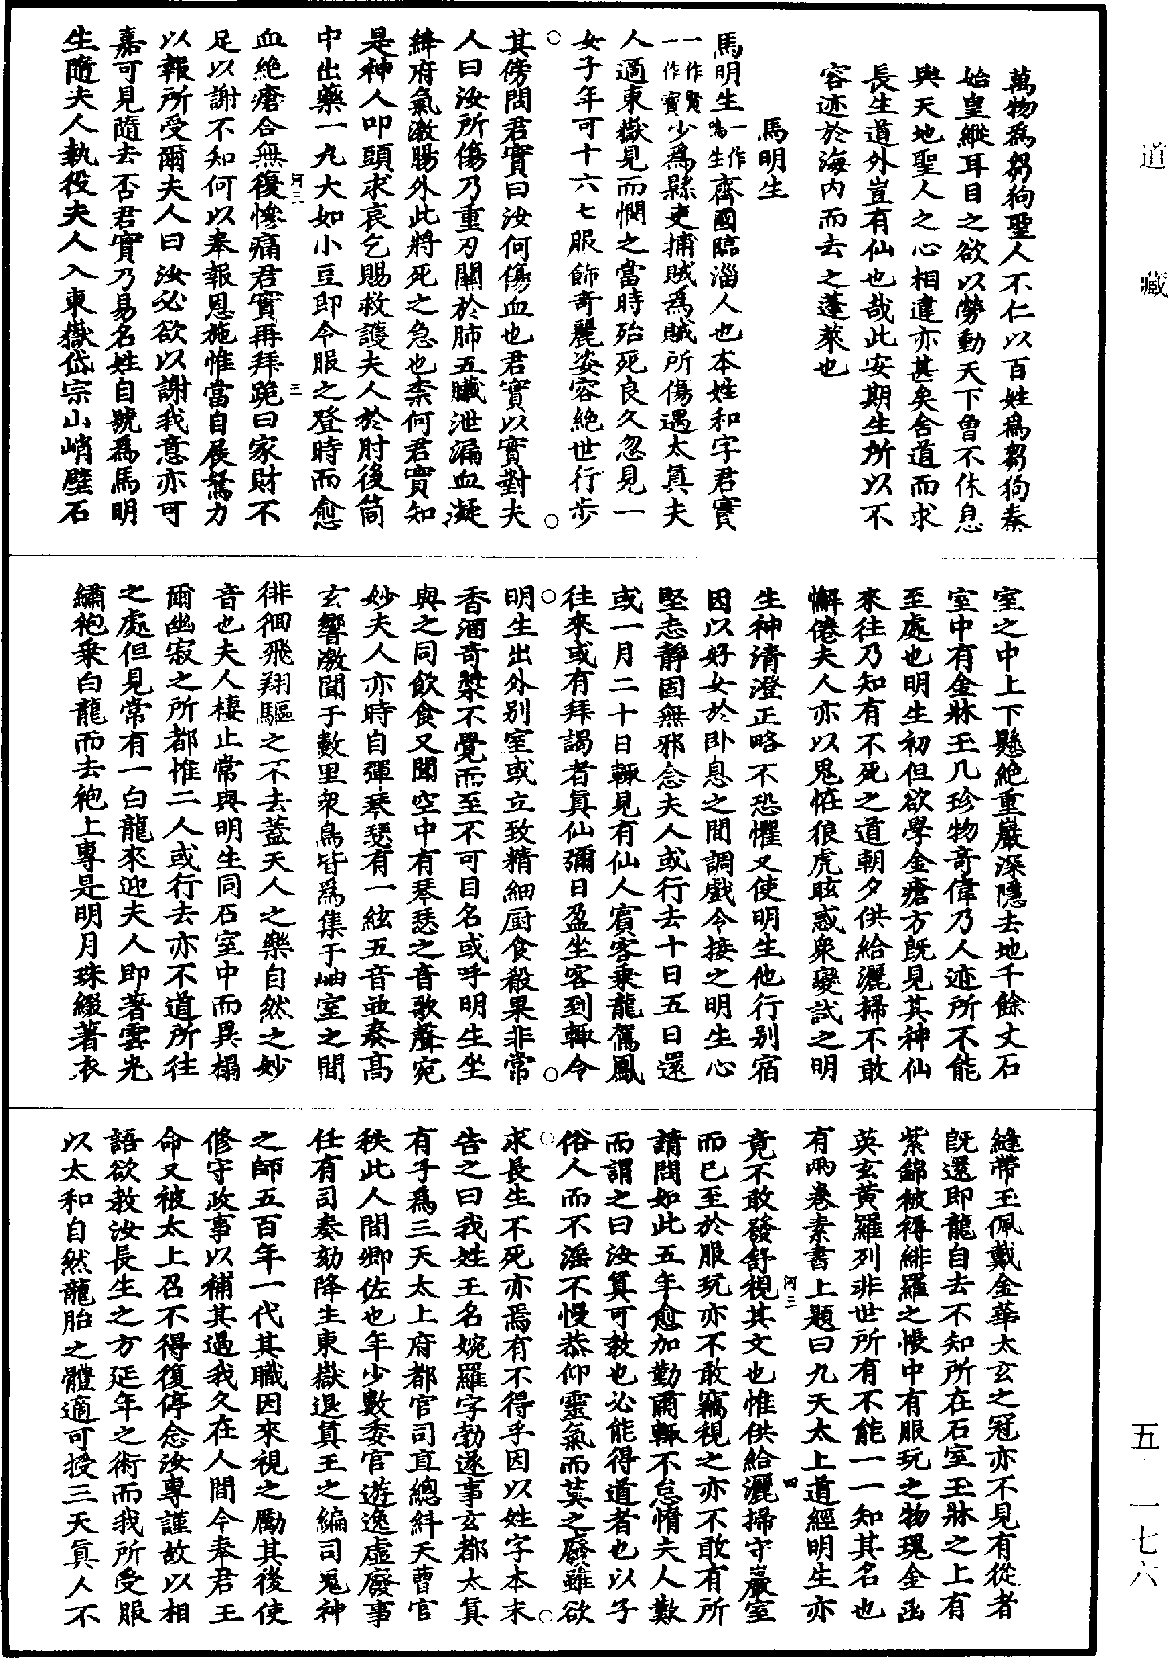 道藏
萬物為芻狗聖人不仁以百姓為芻狗秦
始皇縱耳目之欲以勞動天下曾不休息
與天地聖人之心相違亦甚矣舍道而求
長生道外豈有仙也哉此安期生所以不
容迹於海內而去之蓬萊也
馬明生
馬明生一作鳴生齊國臨淄人也本姓和字君實
一作賢一作寳少為縣吏捕賊為賊所傷遇太真夫
人適東嶽見而憫之當時殆死良久忽見一
女子年可十六七服飾奇麗姿容絶世行步
其傍問君實曰汝何傷血也君實以實對夫
人曰汝所傷乃重刃關於肺五臟泄漏血凝
絳府氣激腸外此將死之急也柰何君實知
是神人叩頭求哀乞賜救護夫人於肘後筒
中出藥一丸大如小豆即令服之登時而愈
血絶瘡合無復慘痛君實再拜跪曰家財不
足以謝不知何以奉報恩施惟當自展駑力
以報所受爾夫人曰汝必欲以謝我意亦可
嘉可見隨去否君實乃易名姓自號為馬明
生隨夫人執役夫人入東嶽岱宗山峭壁石
河三
三
室之中上下懸絶重巖深隱去地千餘丈石
室中有金牀玉几珍物奇偉乃人迹所不能
至處也明生初但欲學金瘡方旣見其神仙
來往乃知有不死之道朝夕供給灑掃不敢
懈倦夫人亦以鬼恠狼虎眩惑衆變試之明
生神清澄正略不恐懼又使明生他行别宿
因以好女於卧息之間調戲令接之明生心
堅志靜固無邪念夫人或行去十日五日還
或一月二十日輒見有仙人賓客乘龍駕鳳
往來或有拜謁者真仙彌日盈坐客到輒令
明生出外别室或立致精細厨食殽果非常
香酒奇漿不覺而至不可目名或呼明生坐
與之同飲食又聞空中有琴瑟之音歌聲宛
妙夫人亦時自彈琴瑟有一絃五音並奏高
玄響激聞于數里衆鳥皆為集于岫室之間
徘徊飛翔驅之不去蓋天人之樂自然之妙
音也夫人棲止常與明生同石室中而異榻
爾幽寂之所都惟二人或行去亦不道所往
之處但見常有一白龍來迎夫人即著雲光
繡袍乘白龍而去袍上專是明月珠綴著衣
縫帶玉佩戴金華太玄之冠亦不見有從者
旣還即龍自去不知所在石室玉牀之上有
紫錦被褥緋羅之帳中有服玩之物瑰金函
英玄黃羅列非世所有不能一一知其名也
有兩卷素書上題曰九天太上道經明生亦
竟不敢發舒視其文也惟供給灑掃守巖室
而已至於服玩亦不敢竊視之亦不敢有所
請問如此五年愈加勤爾輒不怠惰夫人歎
而謂之曰汝真可教也必能得道者也以子
俗人而不淫不慢恭仰靈氣而莫之廢雖欲
求長生不死亦焉有不得乎因以姓字本末
告之曰我姓王名婉羅字勃遂事玄都太真
有子為三天太上府都官司直總糾天曹官
秩此人間卿佐也年少數委官遊逸虛廢事
任有司奏劾降主東嶽退真王之編司鬼神
之師五百年一代其職因來視之勵其後使
修守政事以補其過我久在人間今奉君王
命又被太上召不得復停念汝專謹故以相
語欲教汝長生之方延年之術而我所受服
以太和自然龍胎之醴適可授三天真人不
河三
四
五·一七六